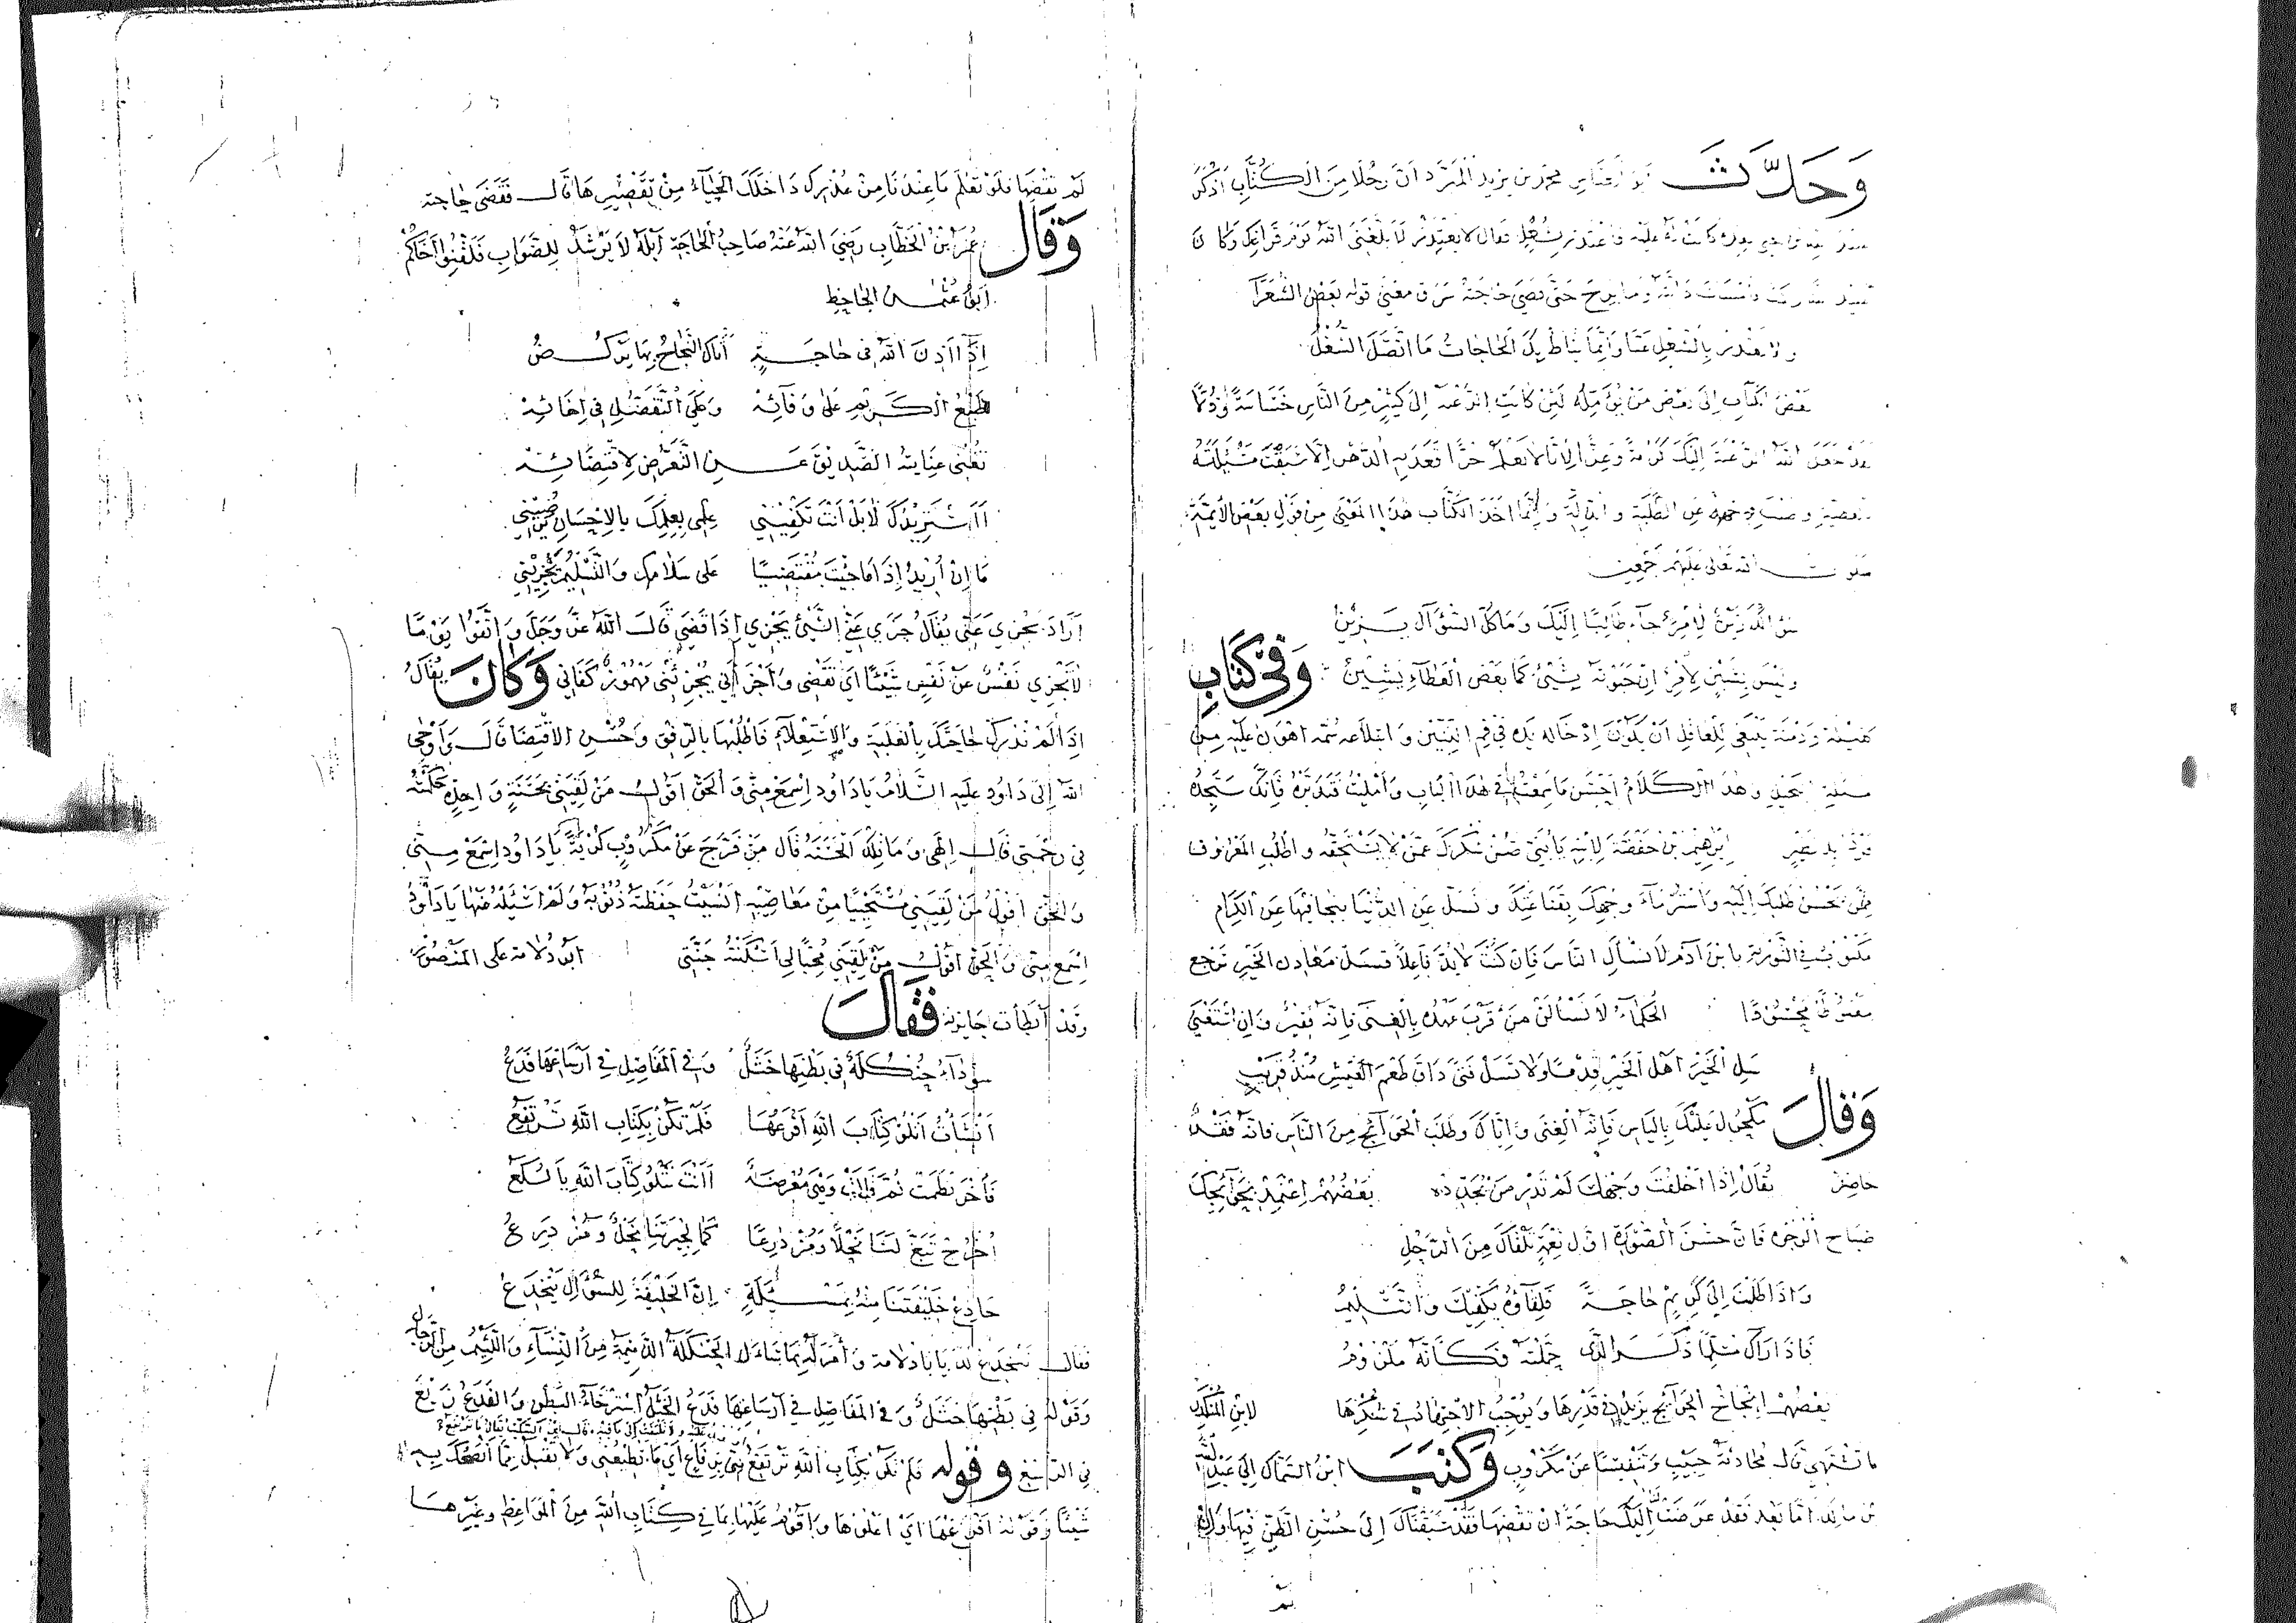 وَحَدَّثَ أبو العباس محمد بن يزيد المبرد ان رجلا من الكتاب اذكر
كانت له عليه فاعتذر بشغل فقال لا تعتذر لا بلغني الله يوم فراغك وكان
وما برح حتى قضى حاجته سرق معنى قوله بعض الشعرآ
ولا تعتذر بالشغل عنا وانما تناط بك الحاجات ما اتصل الشغل
بعض الكتاب الى بعض من يؤمله لئن كانت الرغبة الى كثير من الناس خساسة وذما
لقد جعل الله الرغبة اليك كرمة وعزا لانا لا نعلم حرا قعد به الدهر الا سبقت مسئلته
وصنت وجهه عن الطلبة والذلة وانما اخذ الكتاب هذا المعنى من قول بعض الائمة
صلوات الله تعالى عليهم اجمعين
لامرئ جآء طالبا اليك وما كل السؤال يزين
وليس بشين لامرئ ان حبوته بشيئ كما بعض العطآء يشين وَفِي كِتَابِ
كليلة ودمنة ينبغي للعاقل ان يكون ادخاله يده في فم التنين وابتلاعه سمه اهون عليه من
مسئلة بخيل وهذا الكلام احسن ما سمعته في هذا الباب واملت فتدبره فانك ستجده
فردا بلا نظير ابرهيم بن حفصة لابنه يا بني صن شكرك عمن لا يستحقه واطلب المعروف
ممن يحسن طلبك اليه واستر مآء وجهك بقناعتك وتسل عن الدنيا بتجافيها عن الكرام
مكتوب في التورية يا بن آدم لا تسأل الناس فان كنت لا بد فاعلا فسل معادن الخير ترجع
مغبوطا محسودا الحكمآء لا تسألن من قرب عهده بالغنى فانه فقير وان استغنى
سل الخير اهل الخير قدما ولا تسل فتى ذاق طعم العيش منذ قريب
وَقَالَ مكحول عليك بالياس فانه الغنى واياك وطلب الحوآئج من الناس فانه فقد
حاضر يقال اذا اخلقت وجهك لم تدر من يجدده بعضهم اعتمد بحوآئجك
صباح الوجوه فان حسن الصورة اول نعمة تلقاك من الرجل
واذا طلبت الى كريم حاجة فلقآؤه يكفيك والتسليم
فاذا راك مسلما ذكر الذي حملته فكانه ملزوم
بعضهم انجاح الحوآئج يزيد في قدرها ويوجب الاجتهاد في شكرها لابن المنكدر
ما تشتهي قال محادثة حبيب وتنفيسا عن مكروب وَكَتَبَ ابن السماك الى عبد الله
اما بعد فقد عرضت اليك حاجة ان تقضها فقد سبقناك الى حسن الظن فيها وان
لم تقضها فلو تعلم ما عندنا من عذرك داخلك الحيآء من تقصيرها قال فقضى حاجته
وَقَالَ عمر ابن الخطاب رضي الله عنه صاحب الحاجة ابله لا يرشد للصواب فلقنوا اخاكم
ابو عثمن الجاحظ
اذا اذن الله في حاجة اتاك النجاح بها يركض
طبع الكريم على وفآئه وعلى التفضل في اخآئه
تغني عنايته الصديق عن التعرض لاقتضآئه
أأستزيدك لا بل انت تكفيني علمي بعلمك بالاحسان يرضيني
ما ان اريد اذا ما جيت مقتضيا على سلامك والتسليم يجزيني
اراد يجزي عني يقال جزي عني الشيئ يجزي اذا قضى قال الله عز وجل واتقوا يوما
لا تجزي نفس عن نفس شيئا اي تقضي واجزاني يجزئني مهموز كفاني وَكَانَ يقال
اذا لم تدرك حاجتك بالغلبة والاستعلآء فاطلبها بالرفق وحسن الاقتضا قال واوحى
الله الى داود عليه السلام يا داود اسمع مني والحق اقول من لقيني بحسنة واحدة حكمته
في رحمتي قال الهي وما تلك الحسنة قال من فرج عن مكروب كربة يا داود اسمع مني
والحق اقول من لقيني مستحييا من معاصيه انسيت حفظته ذنوبه ولم اسئله عنها يا داود
اسمع مني والحق اقول من لقيني محبا لي اسكنته جنتي ابو دلامة على المنصور
وقد ابطأت جايزته فَقَالَ
سودآء حنكلة في بطنها خثل وفي المفاصل في ارساغها فدع
انشأت اتلو كتاب الله اقرعها فلم تكن بكتاب الله ترتفع
فأخرنطمت ثم قالت وهي مغرضة أأنت تتلو كتاب الله يا لكع
اخرج تبغ لنا نخلا ومزدرعا كما لجيرتنا نخل ومزدرع
خادع خليفتنا منه بمسئلة ان الخليفة للسؤال ينخدع
فقال ننخدع لك يا ابا دلامة وأمر له بما سأل الحنكلة الذميمة من النسآء واللئيم من الرجال
وقوله في بطنها خثل وفي المفاصل في ارساغها فدع الخثل استرخآء البطن والفدع زيغ
في الرسغ وقوله فلم تكن بكتاب الله ترتفع اي ما تطيعني ولا تقبل مما انصحك به
شيئا وقوله اقرعها اي اعلوها واقوم عليها بما في كتاب الله من المواعظ وغيرها